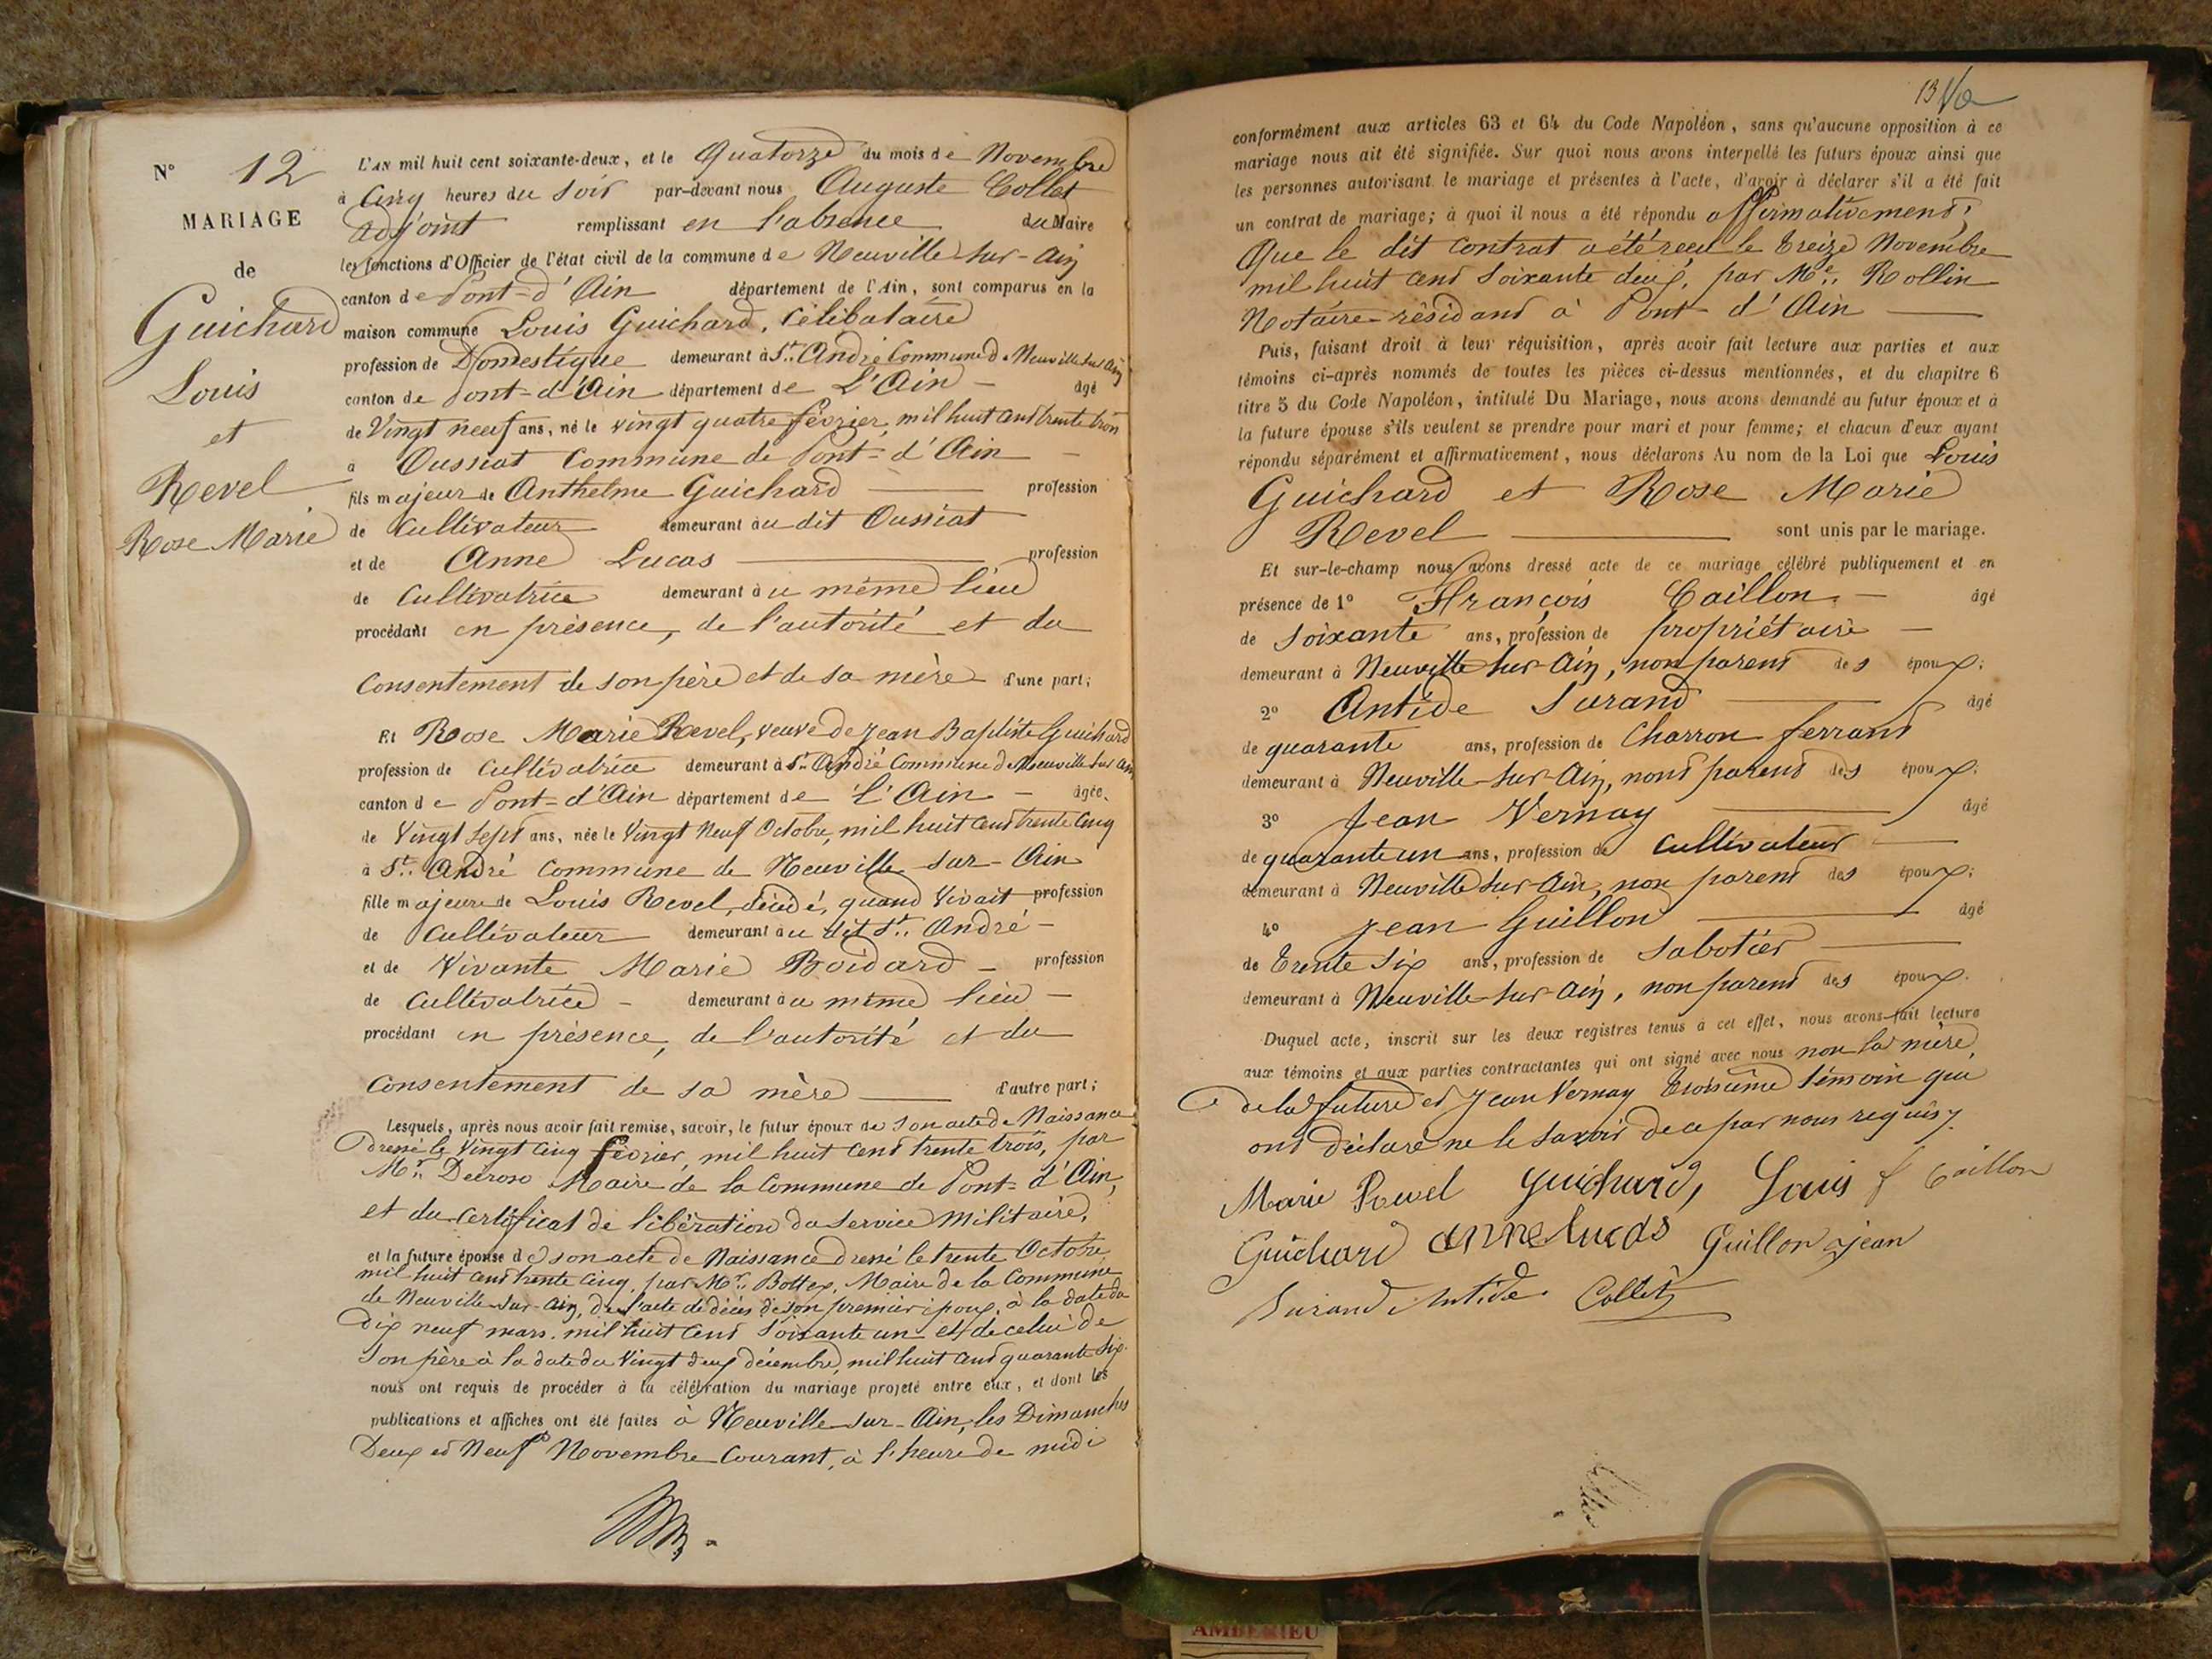 N° 12
MARIAGE
de
Guichard
Louis
et
Revel
Rose Marie
L'AN mil huit cent soixante-deux, et le Quatorze du mois de Novembre
à Cinq heures du soir par-devant nous Auguste Collet
adjoint remplissant en l'absence du Maire
les fonctions d'Officier de l'état civil de la commune de Neuville-sur-Ain
canton de Pont-d'Ain département de l'Ain, sont comparus en la
maison commune Louis Guichard, Célibataire
profession de Domestique demeurant à St. André Commune de Neuville sur Ain
canton de Pont-d'Ain département de L'Ain - âgé
de Vingt neuf ans, né le vingt quatre février, mil huit cent trente trois
à Oussiat Commune de Pont-d'Ain -
fils majeur de Anthelme Guichard profession
de Cultivateur demeurant au dit Oussiat
et de Anne Lucas profession
de Cultivatrice demeurant au même lieu
procédant en présence, de l'autorité et du
Consentement de son père et de sa mère d'une part;
Et Rose Marie Revel, veuve de Jean Baptiste Guichard
profession de Cultivatrice demeurant à St. André Commune de Neuville sur Ain
canton de Pont-d'Ain département de L'Ain - âgée
de Vingt sept ans, née le Vingt Neuf Octobre, mil huit cent trente cinq
à St. André Commune de Neuville-sur-Ain
fille majeure de Louis Revel, décédé, quand Vivait profession
de Cultivateur demeurant au dit St. André -
et de Vivante Marie Boidard - profession
de Cultivatrice - demeurant au même lieu -
procédant en présence, de l'autorité et du
Consentement de sa mère d'autre part;
Lesquels, après nous avoir fait remise, savoir, le futur époux de son acte de Naissance
dressé le Vingt Cinq février, mil huit cent trente trois, par
Mr. Maire de la Commune de Pont-d'Ain,
et du Certificat de libération du service Militaire,
et la future épouse de son acte de Naissance dressé le trente Octobre
mil huit cent trente cinq, par Mr. Bottex, Maire de la Commune
de Neuville-sur-Ain, de l'acte de décès de son premier époux, à la date du
Dix neuf mars, mil huit cent soixante un et de celui de
son père à la date du Vingt deux décembre, mil huit cent quarante six.
nous ont requis de procéder à la célébration du mariage projeté entre eux, et dont les
publications et affiches ont été faites à Neuville-sur-Ain, les Dimanches
Deux et Neuf Novembre Courant, à l'heure de midi
13
conformément aux articles 63 et 64 du Code Napoléon, sans qu'aucune opposition à ce
mariage nous ait été signifiée. Sur quoi nous avons interpellé les futurs époux ainsi que
les personnes autorisant le mariage et présentes à l'acte, d'avoir à déclarer s'il a été fait
un contrat de mariage; à quoi il nous a été répondu affirmativement,
Que le dit Contrat a été reçu le treize Novembre
mil huit cent soixante deux, par Me. Rollin
Notaire résidant à Pont-d'Ain
Puis, faisant droit à leur réquisition, après avoir fait lecture aux parties et aux
témoins ci-après nommés de toutes les pièces ci-dessus mentionnées, et du chapitre 6
titre 5 du Code Napoléon, intitulé Du Mariage, nous avons demandé au futur époux et à
la future épouse s'ils veulent se prendre pour mari et pour femme; et chacun d'eux ayant
répondu séparément et affirmativement, nous déclarons Au nom de la Loi que Louis
Guichard et Rose Marie
Revel sont unis par le mariage.
Et sur-le-champ nous avons dressé acte de ce mariage célébré publiquement et en
présence de 1° François Caillon - âgé
de soixante ans, profession de propriétaire -
demeurant à Neuville-sur-Ain, non parent des époux;
2° Antide Surand âgé
de quarante ans, profession de Charron ferrant
demeurant à Neuville-sur-Ain, nont parent des époux;
3° Jean Vernay âgé
de quarante un ans, profession de Cultivateur
demeurant à Neuville sur-Ain, non parent des époux;
4° Jean Guillon âgé
de trente six ans, profession de Sabotier
demeurant à Neuville-sur-Ain, non parent des époux.
Duquel acte, inscrit sur les deux registres tenus à cet effet, nous avons fait lecture
aux témoins et aux parties contractantes qui ont signé avec nous non la mère,
de la future et Jean Vernay troisième témoin qui
ont déclaré ne le savoir de ce par nous requis.
Marie Revel Guichard, Louis f Caillon
Guichard anne lucas Guillon jean
Surand Antide Collet
AMBERIEU